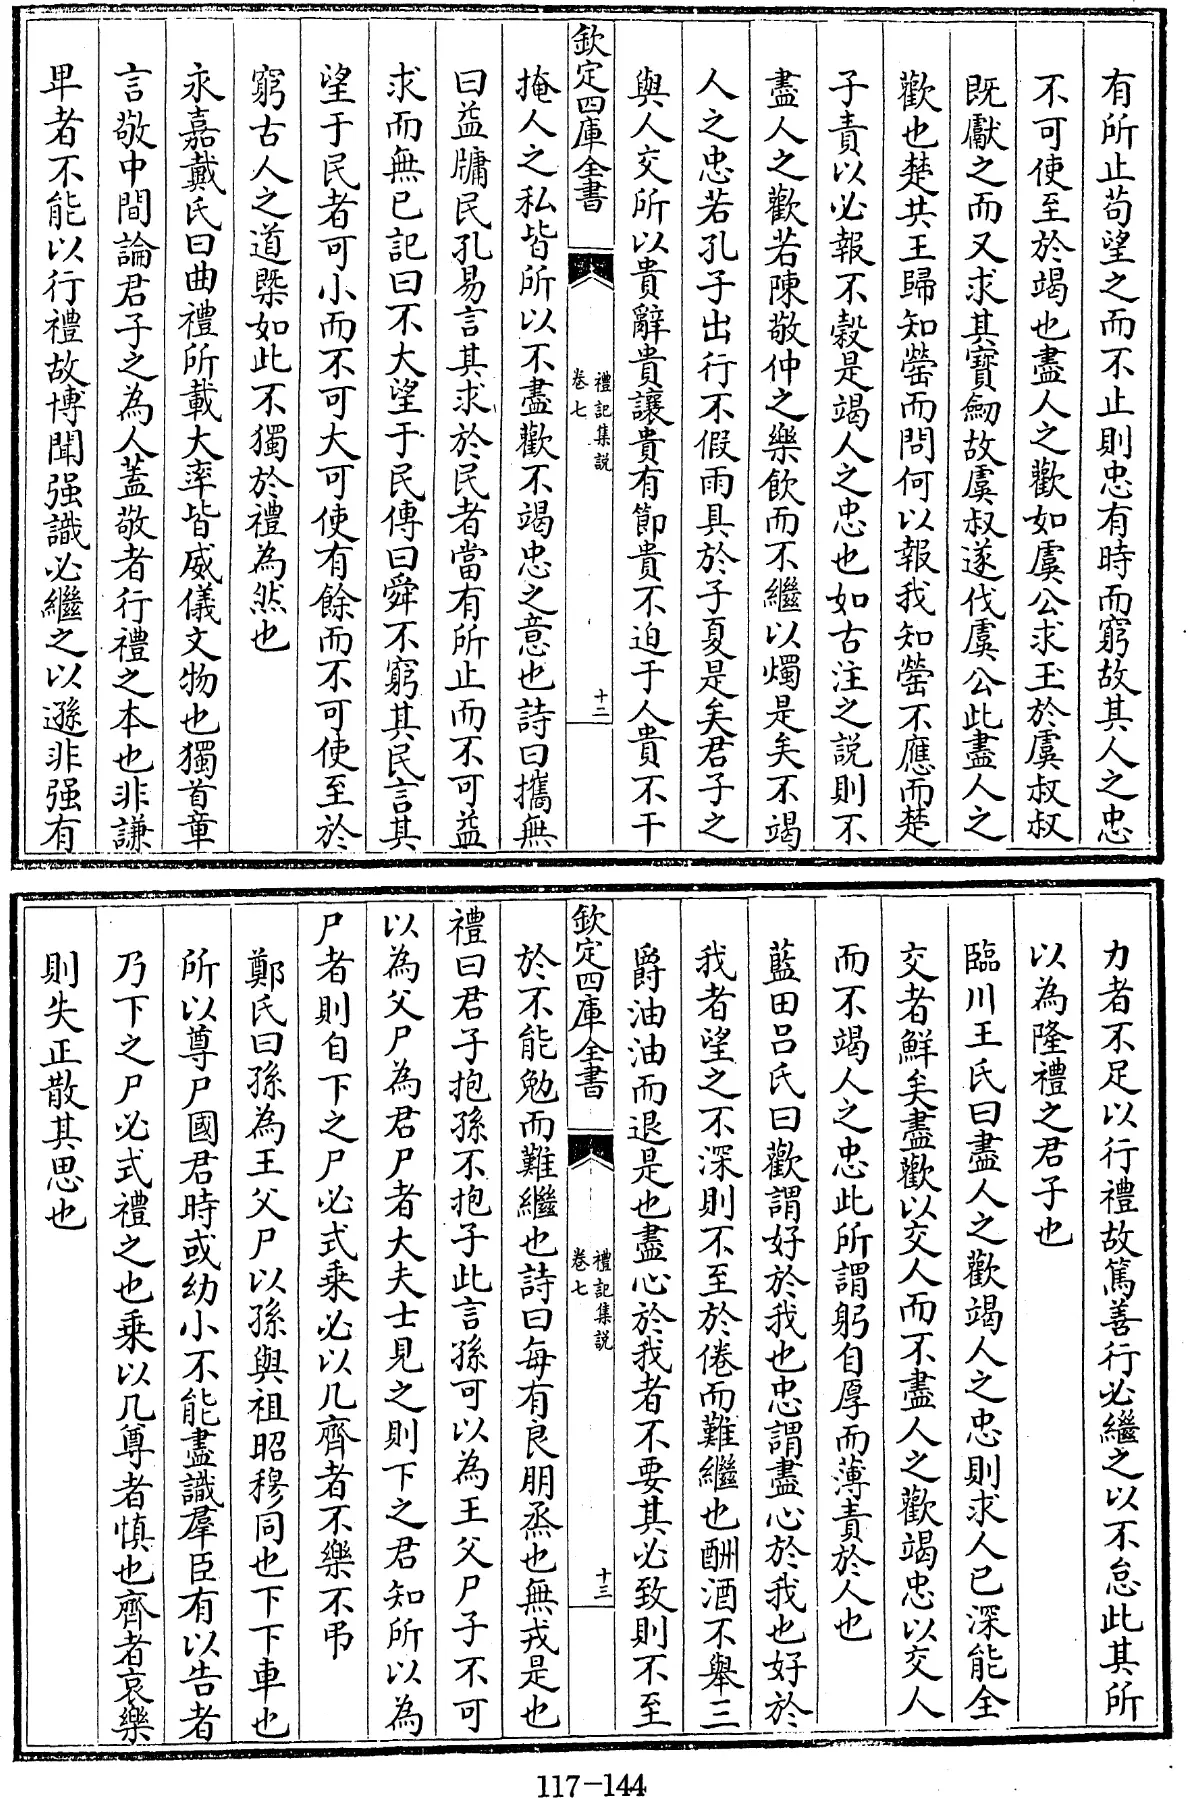 有所止苟望之而不止則忠有時而窮故其人之忠
不可使至於竭也盡人之歡如虞公求玉於虞叔叔
既獻之而又求其寳劒故虞叔遂伐虞公此盡人之
歡也楚共王歸知罃而問何以報我知罃不應而楚
子責以必報不穀是竭人之忠也如古注之説則不
盡人之歡若陳敬仲之樂飲而不繼以燭是矣不竭
人之忠若孔子出行不假雨具於子夏是矣君子之
與人交所以貴辭貴讓貴有節貴不迫于人貴不干
欽定四庫全書
禮記集説
卷七
十二
掩人之私皆所以不盡歡不竭忠之意也詩曰攜無
曰益牖民孔易言其求於民者當有所止而不可益
求而無已記曰不大望于民傳曰舜不窮其民言其
望于民者可小而不可大可使有餘而不可使至於
窮古人之道槩如此不獨於禮為然也
永嘉戴氏曰曲禮所載大率皆威儀文物也獨首章
言敬中間論君子之為人蓋敬者行禮之本也非謙
卑者不能以行禮故博聞强識必繼之以遜非强有
力者不足以行禮故篤善行必繼之以不怠此其所
以為隆禮之君子也
臨川王氏曰盡人之歡竭人之忠則求人已深能全
交者鮮矣盡歡以交人而不盡人之歡竭忠以交人
而不竭人之忠此所謂躬自厚而薄責於人也
藍田呂氏曰歡謂好於我也忠謂盡心於我也好於
我者望之不深則不至於倦而難繼也酬酒不舉三
爵油油而退是也盡心於我者不要其必致則不至
欽定四庫全書
禮記集説
卷七
十三
於不能勉而難繼也詩曰每有良朋烝也無戎是也
禮曰君子抱孫不抱子此言孫可以為王父尸子不可
以為父尸為君尸者大夫士見之則下之君知所以為
尸者則自下之尸必式乘必以几齊者不樂不弔
鄭氏曰孫為王父尸以孫與祖昭穆同也下下車也
所以尊尸國君時或幼小不能盡識羣臣有以告者
乃下之尸必式禮之也乘以几尊者慎也齊者哀樂
則失正散其思也
117-144